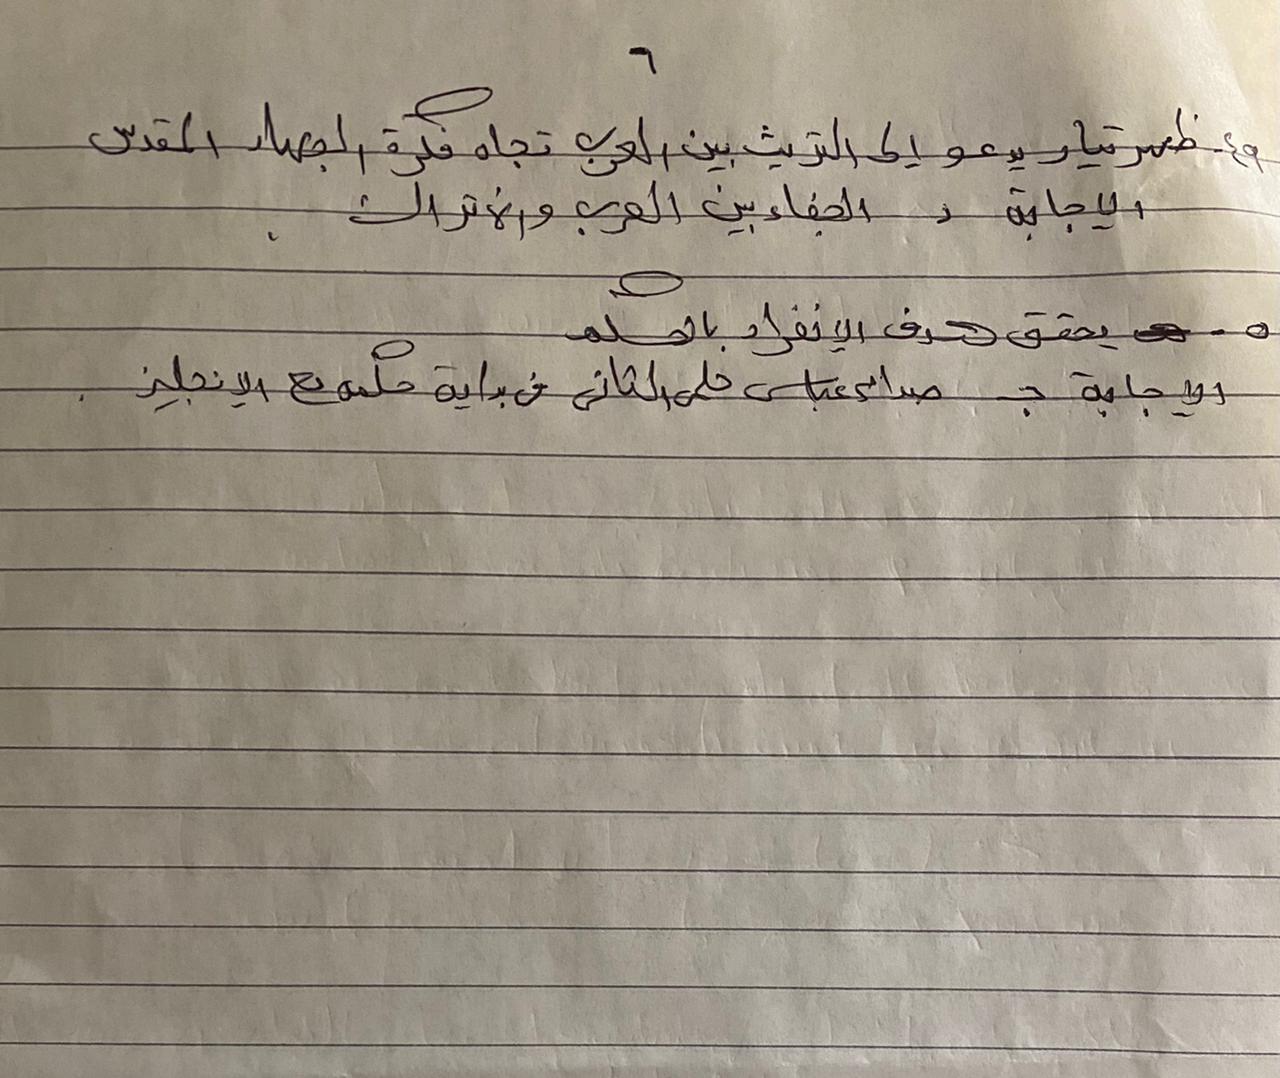 ٦
٤٩- ظهر تيار يدعو إلى التريث بين العرب تجاه فكرة الجهاد المقدس
الإجابة د الجفاء بين العرب والأتراك .
٥٠- يحقق هدف الإنفراد بالحكم
الإجابة جـ صدام عباس حلمى الثانى فى بداية حكمه مع الإنجليز .